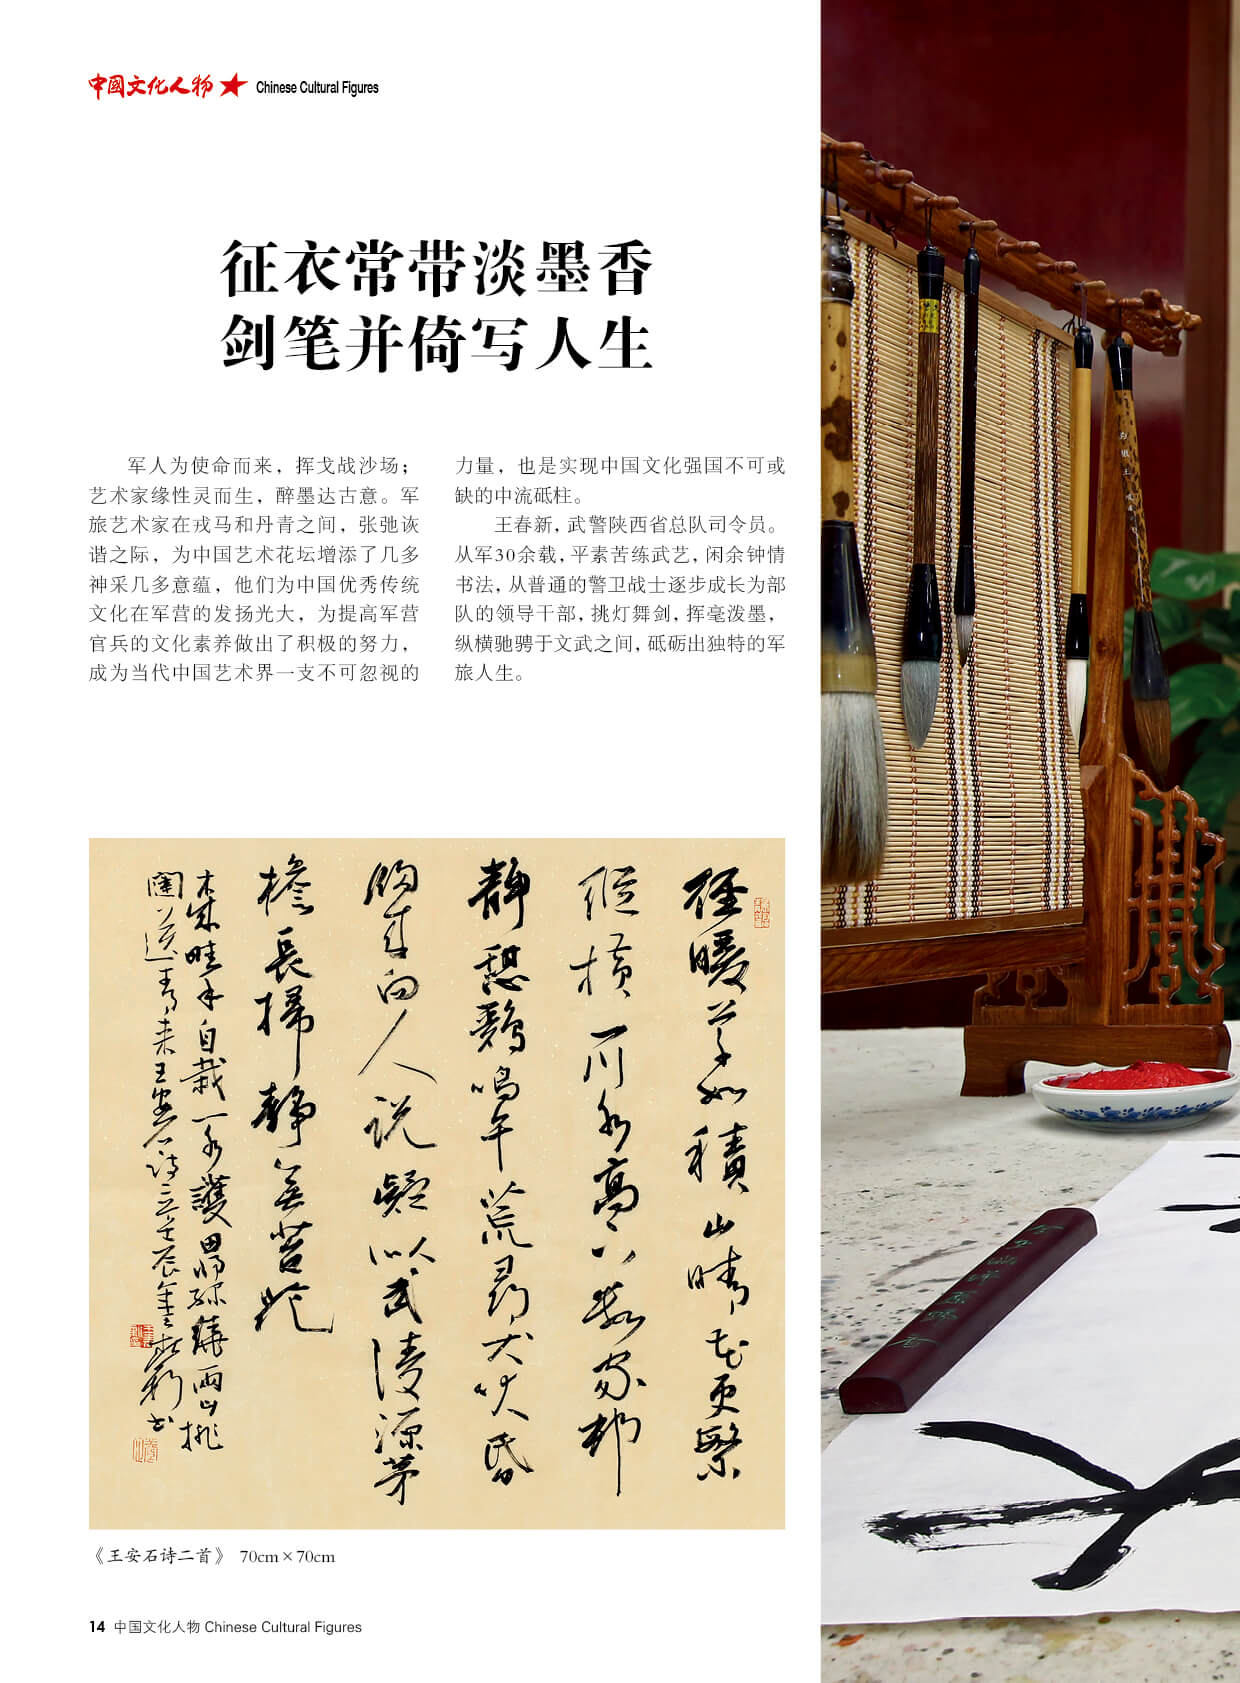 中國文化人物 Chinese Cultural Figures
征衣常带淡墨香
剑笔并倚写人生
军人为使命而来，挥戈战沙场；
艺术家缘性灵而生，醉墨达古意。军
旅艺术家在戎马和丹青之间，张弛诙
谐之际，为中国艺术花坛增添了几多
神采几多意蕴，他们为中国优秀传统
文化在军营的发扬光大，为提高军营
官兵的文化素养做出了积极的努力，
成为当代中国艺术界一支不可忽视的
力量，也是实现中国文化强国不可或
缺的中流砥柱。
王春新，武警陕西省总队司令员。
从军30余载，平素苦练武艺，闲余钟情
书法，从普通的警卫战士逐步成长为部
队的领导干部，挑灯舞剑，挥毫泼墨，
纵横驰骋于文武之间，砥砺出独特的军
旅人生。
徑暖草如積山晴花更繁
縱橫一川水高下數家村
靜憩鷄鳴午荒尋犬吠昏
歸来向人说疑以武陵源茅
檐長掃静無苔花
木成畦手自栽一水護田將綠繞兩山排
闥送青来王安石诗二壬辰年春新书
《王安石诗二首》 70cm×70cm
14 中国文化人物 Chinese Cultural Figures